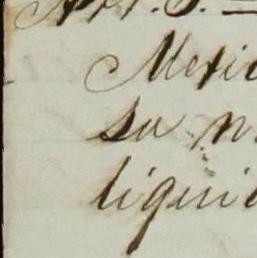 Art. 3. —
Mexic
su n
liquid